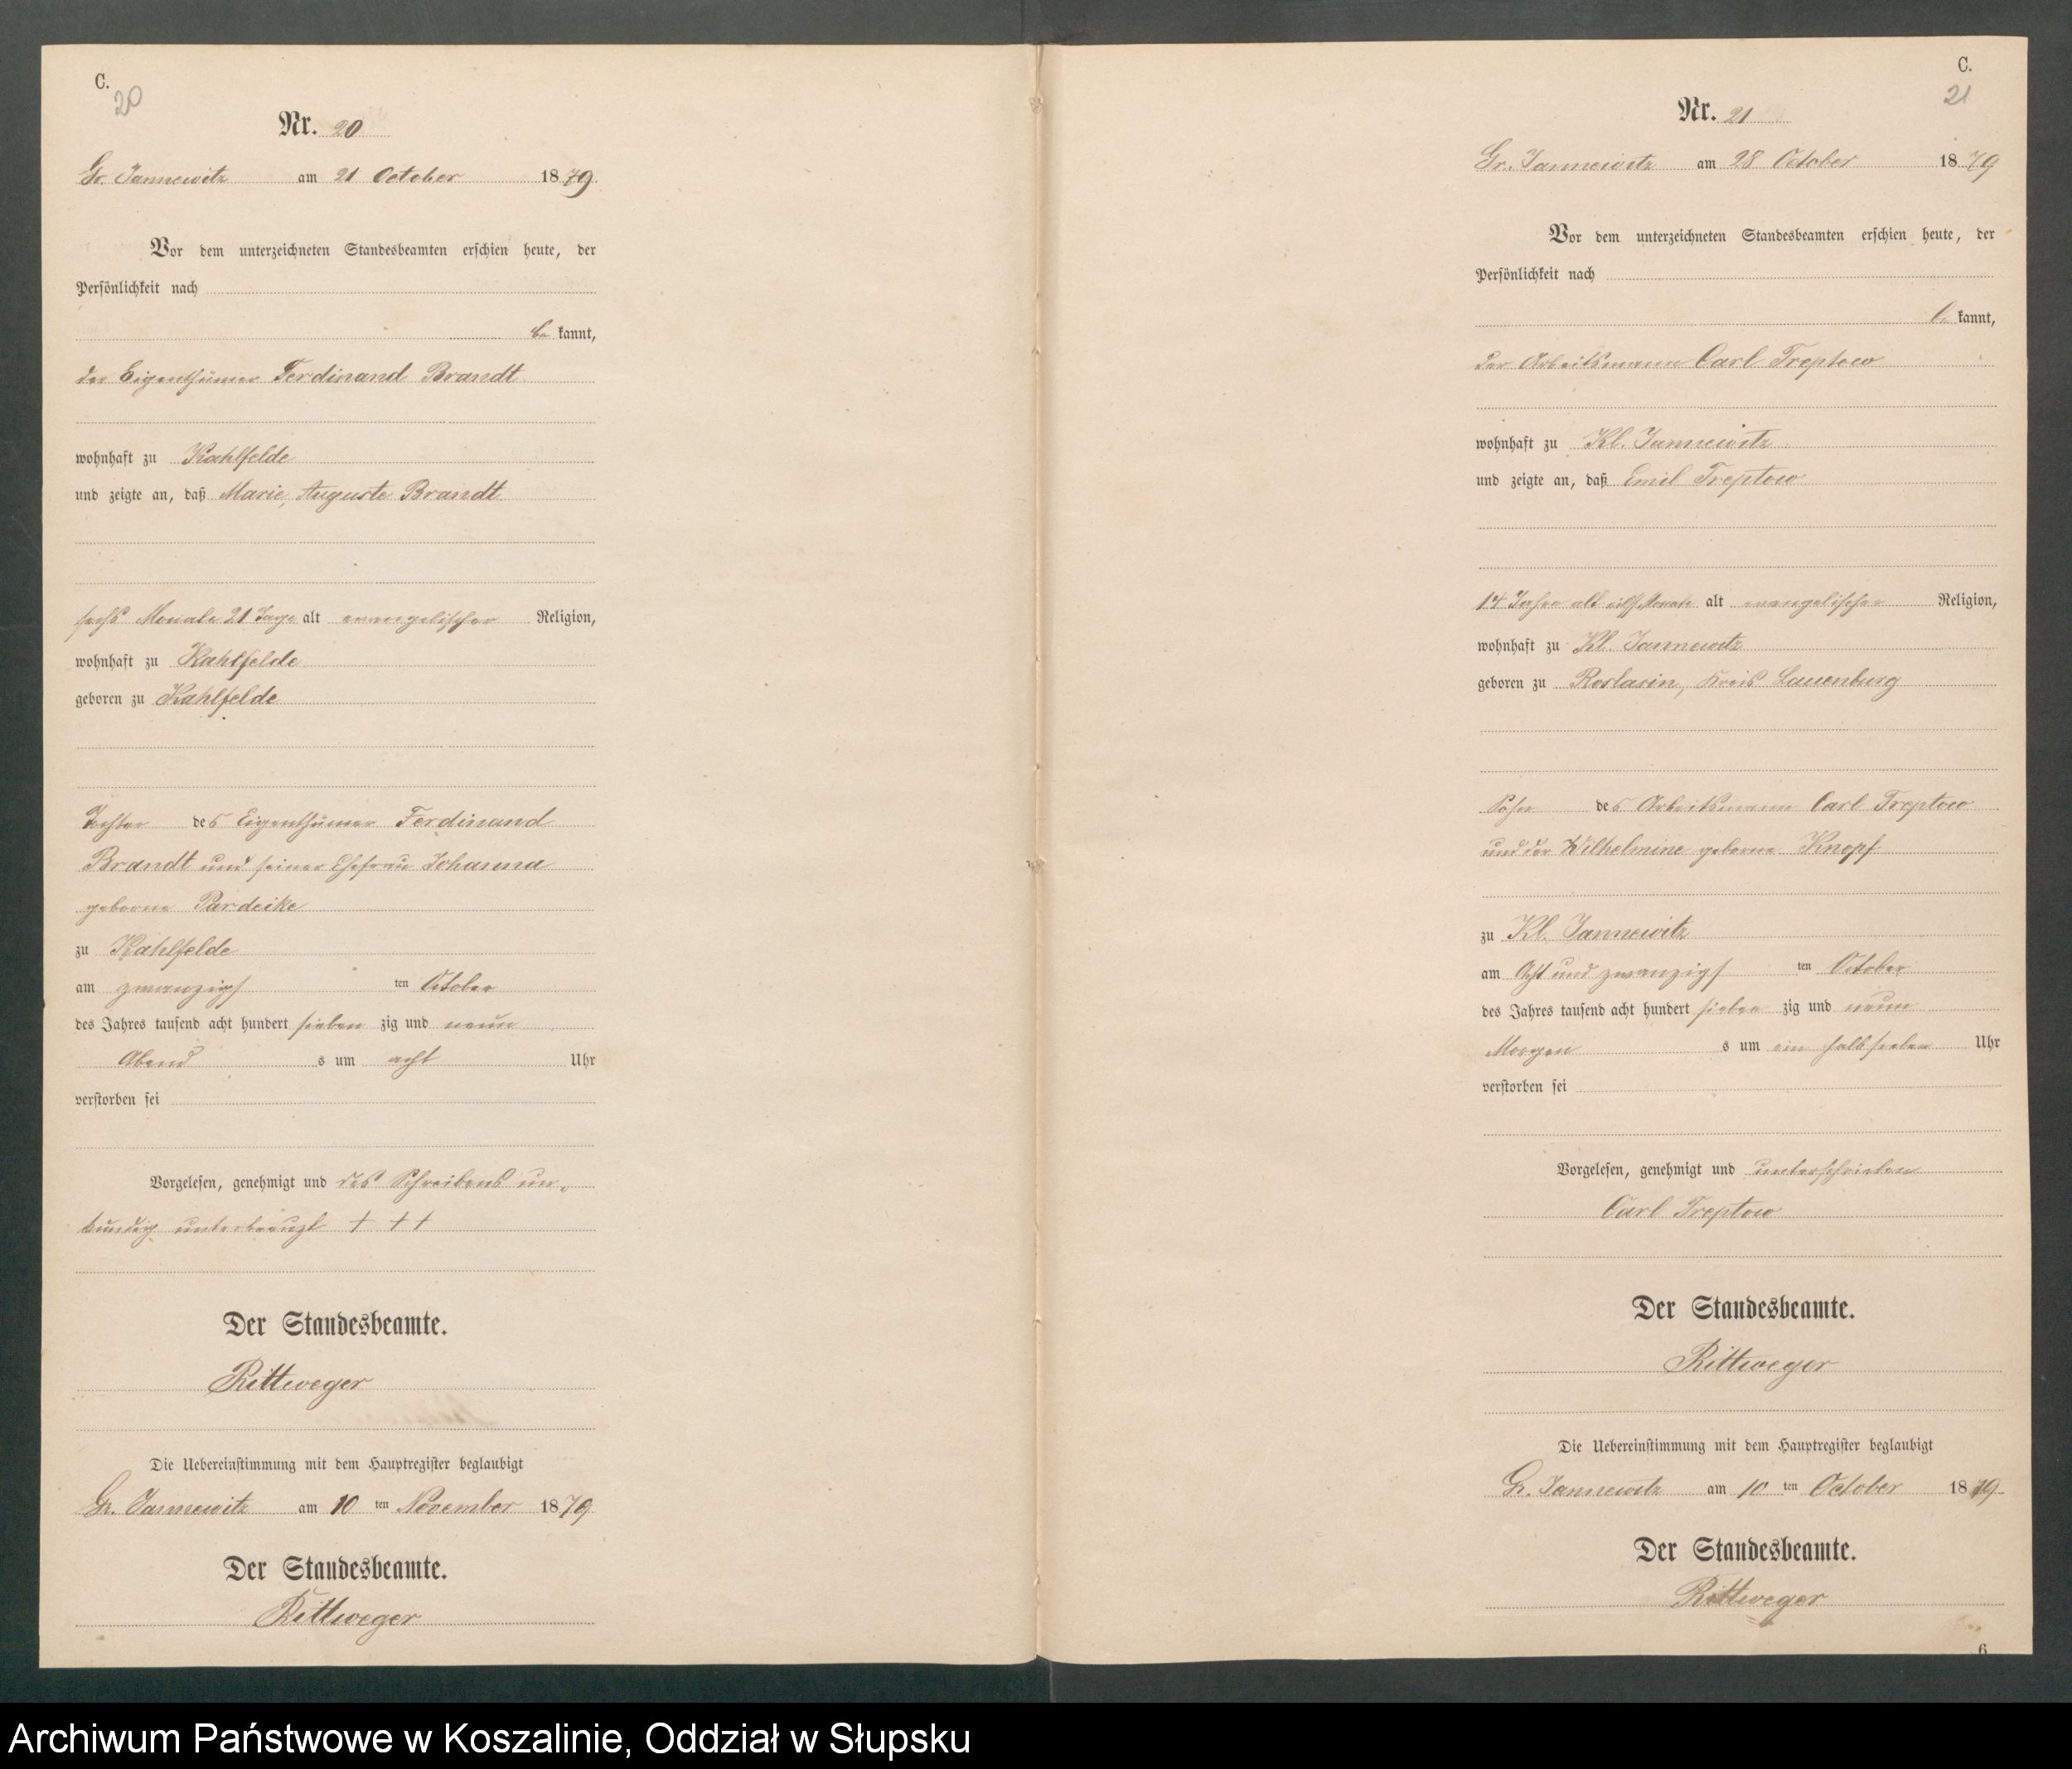 C.
20
Nr. 20
Gr. Jannewitz am 21 October 1879.
Vor dem unterzeichneten Standesbeamten erschien heute, der
Persönlichkeit nach
be kannt,
der Eigenthümer Ferdinand Brandt
wohnhaft zu Kahlfelde
und zeigte an, daß Marie, Auguste Brandt
sechs Monate 21 Tage alt evangelischer Religion,
wohnhaft zu Kahlfelde
geboren zu Kahlfelde
Tochter des Eigenthümer Ferdinand
Brandt und seiner Ehefrau Johanna
geborne Pardeike
zu Kahlfelde
am zwanzigs ten October
des Jahres tausend acht hundert sieben zig und neun
Abend s um acht Uhr
verstorben sei
Vorgelesen, genehmigt und des Schreibens un-
kundig unterkreuzt + + +
Der Standesbeamte.
Rittweger
Die Uebereinstimmung mit dem Hauptregister beglaubigt
Gr. Jannewitz am 10 ten November 1879
Der Standesbeamte.
Rittweger
C.
21
Nr. 21
Gr. Jannewitz am 28 October 1879
Vor dem unterzeichneten Standesbeamten erschien heute, der
Persönlichkeit nach
be kannt,
der Arbeitsmann Carl Treptow
wohnhaft zu Kl. Jannewitz
und zeigte an, daß Emil Treptow
14 Jahre alt eilf Monate alt evangelischer Religion,
wohnhaft zu Kl. Jannewitz
geboren zu Roslasin, Kreis Lauenburg
Sohn des Arbeitsmann Carl Treptow
und der Wilhelmine geborne Knopf
zu Kl. Jannewitz
am Acht und zwanzigs ten October
des Jahres tausend acht hundert sieben zig und neun
Morgen s um ein halb sieben Uhr
verstorben sei
Vorgelesen, genehmigt und unterschrieben
Carl Treptow
Der Standesbeamte.
Rittweger
Die Uebereinstimmung mit dem Hauptregister beglaubigt
Gr. Jannewitz am 10 ten October 1879
Der Standesbeamte.
Rittweger
6
Archiwum Państwowe w Koszalinie, Oddział w Słupsku